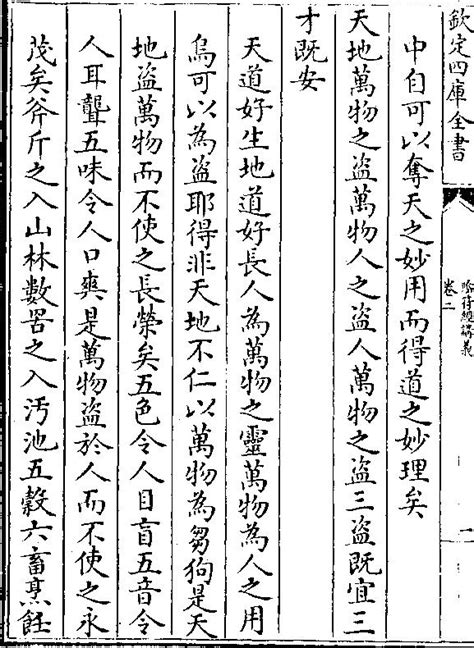 欽定四庫全書
陰符經講義
卷二
一
中自可以奪天之妙用而得道之妙理矣
天地萬物之盜萬物人之盜人萬物之盜三盜既宜三
才既安
天道好生地道好長人為萬物之靈萬物為人之用
烏可以為盜耶得非天地不仁以萬物為芻狗是天
地盜萬物而不使之長榮矣五色令人目盲五音令
人耳聾五味令人口爽是萬物盜於人而不使之永
茂矣斧斤之入山林數罟之入汚池五穀六畜烹飪